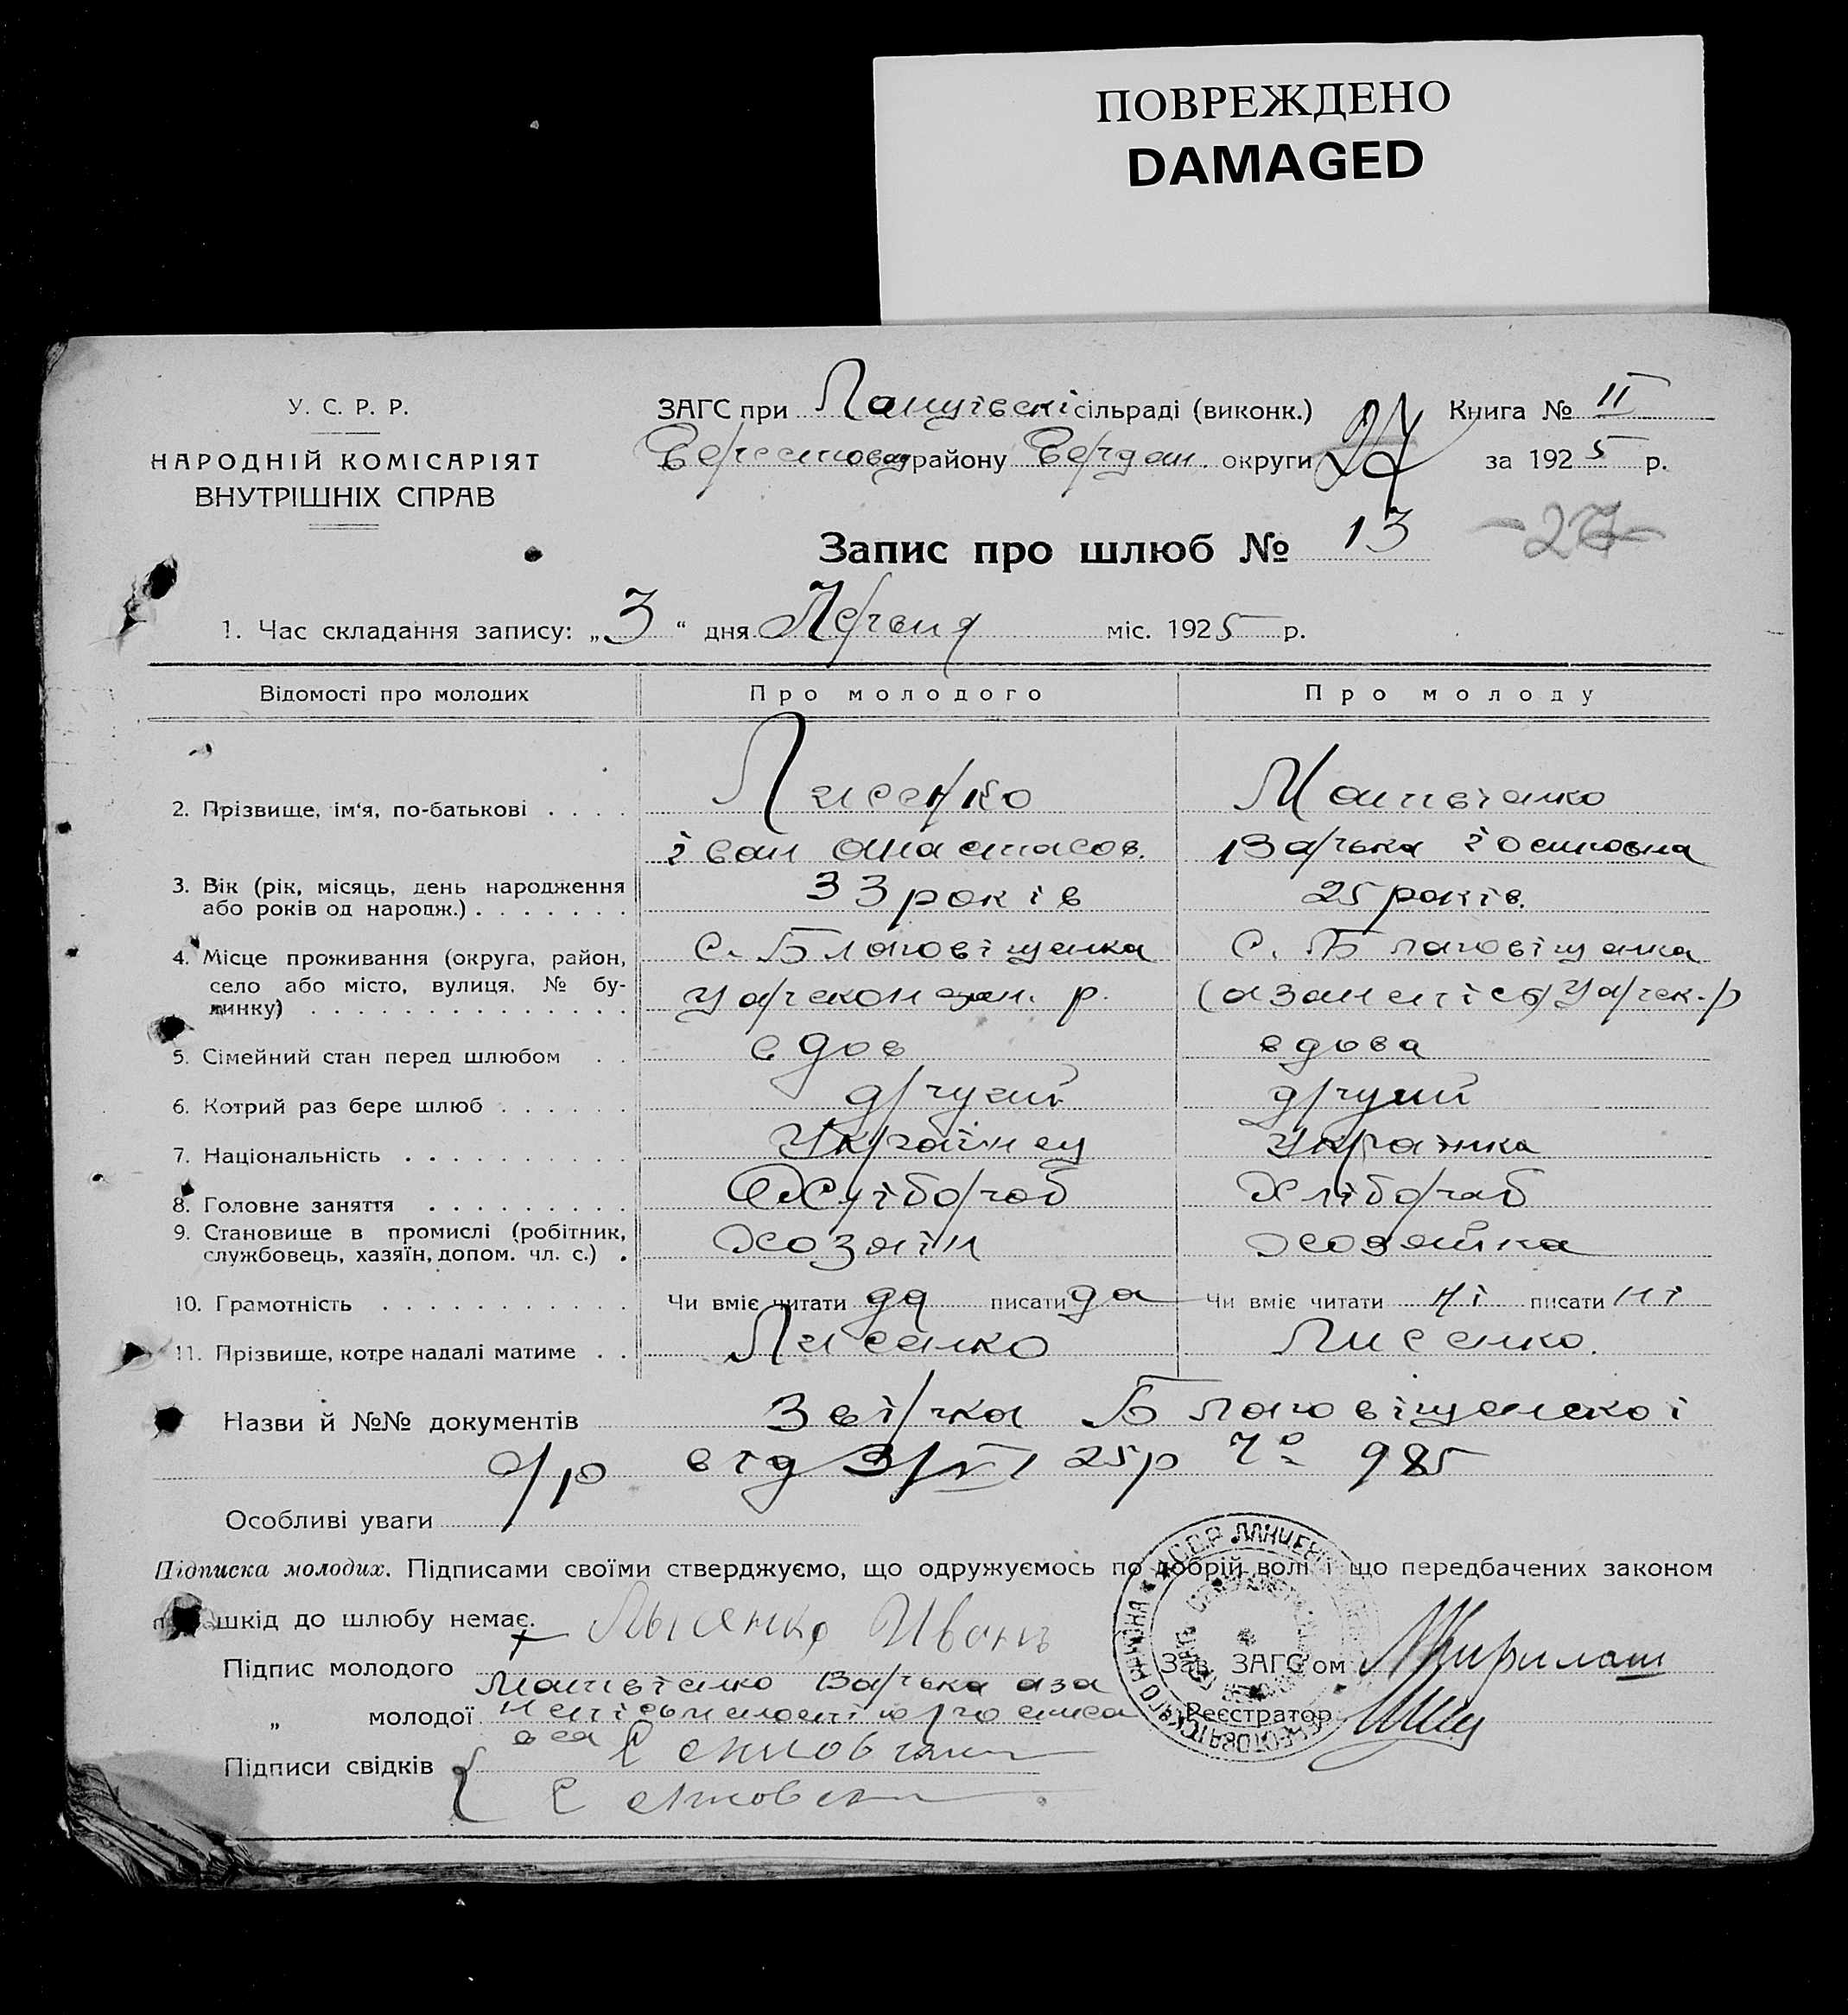 ПОВРЕЖДЕНО
DAMAGED
У. С. Р. Р.
НАРОДНІЙ КОМІСАРІЯТ
ВНУТРІШНІХ СПРАВ
ЗАГС при сільраді (виконк.) Книга № II
району Бердян. округи 27 за 1925 р.
Запис про шлюб № 13
-27-
1. Час складання запису: „3“ дня Червня міс. 1925 р.
Відомості про молодих Про молодого Про молоду
2. Прізвище, ім'я, по-батькові . . . . Лисенко Матвієнко
Іван Анастасов. Варька Іосиповна
3. Вік (рік, місяць, день народження
або років од народж.) . . . . . . . 33 років 25 років.
4. Місце проживання (округа, район,
село або місто, вулиця, № бу-
динку) . . . . . . . . . . . . . .
с. Благовіщенка с. Благовіщенка
5. Сімейний стан перед шлюбом . . вдов вдова
6. Котрий раз бере шлюб . . . . . . другий другий
7. Національність . . . . . . . . . . Українец Українка
8. Головне заняття . . . . . . . . . Хлібороб Хлібороб
9. Становище в промислі (робітник,
службовець, хазяїн, допом. чл. с.) . хозяін хозяйка
10. Грамотність . . . . . . . . . . . Чи вміє читати да писати да Чи вміє читати ні писати ні
11. Прізвище, котре надалі матиме . . Лисенко Лисенко.
Назви й №№ документів Благовіщенскоі
с/р від 3/VI 25р № 985
Особливі уваги
Підписка молодих. Підписами своїми стверджуємо, що одружуємось по добрій волі і що передбачених законом
шкід до шлюбу немає.
Підпис молодого Лысенко Иванъ
Матвієнко Варька а за
„ молодої
Зав. ЗАГС'ом
Реєстратор
Підписи свідків